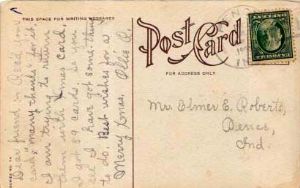 THIS SPACE FOR WRITING MESSAGES
Post Card
FOR ADDRESS ONLY.
Dear friend: 
card, many thanks for it
I am trying to return
them with Xmas card,
I got 89 cards. So you
see I have got some-thing
to do. Best wishes for a
Merry Xmas. Ollie R.
Mr. Elmer E. Roberts,
Ind.